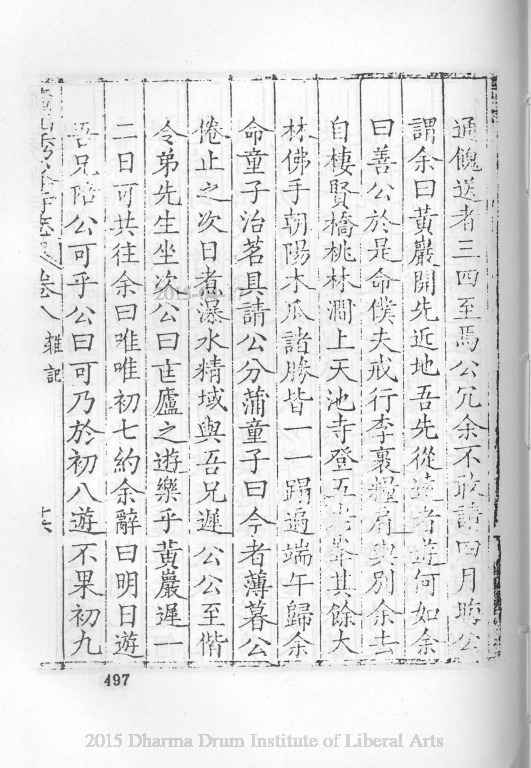 通餽送者三四至焉公冗余不敢請四月晦公
謂余曰黃巖開先近地吾先從遠者遊何如余
曰善公於是命僕夫戒行李裹糧肩輿別余去
自棲賢橋桃林澗上天池寺登五老峯其餘大
林佛手朝陽木瓜諸勝皆一一蹋遍端午歸余
命童子治茗具請公分蒲童子曰今者薄暮公
倦止之次日者瀑水精域與吾兄遲公公至偕
令弟先生坐次公曰茳廬之遊樂乎黃巖遲一
二日可共往余曰唯唯初七約余辭曰明日遊
吾兄陪公可乎公曰可乃於初八遊不果初九
卷八
雜記
497
2015 Dharma Drum Institute of Liberal Arts